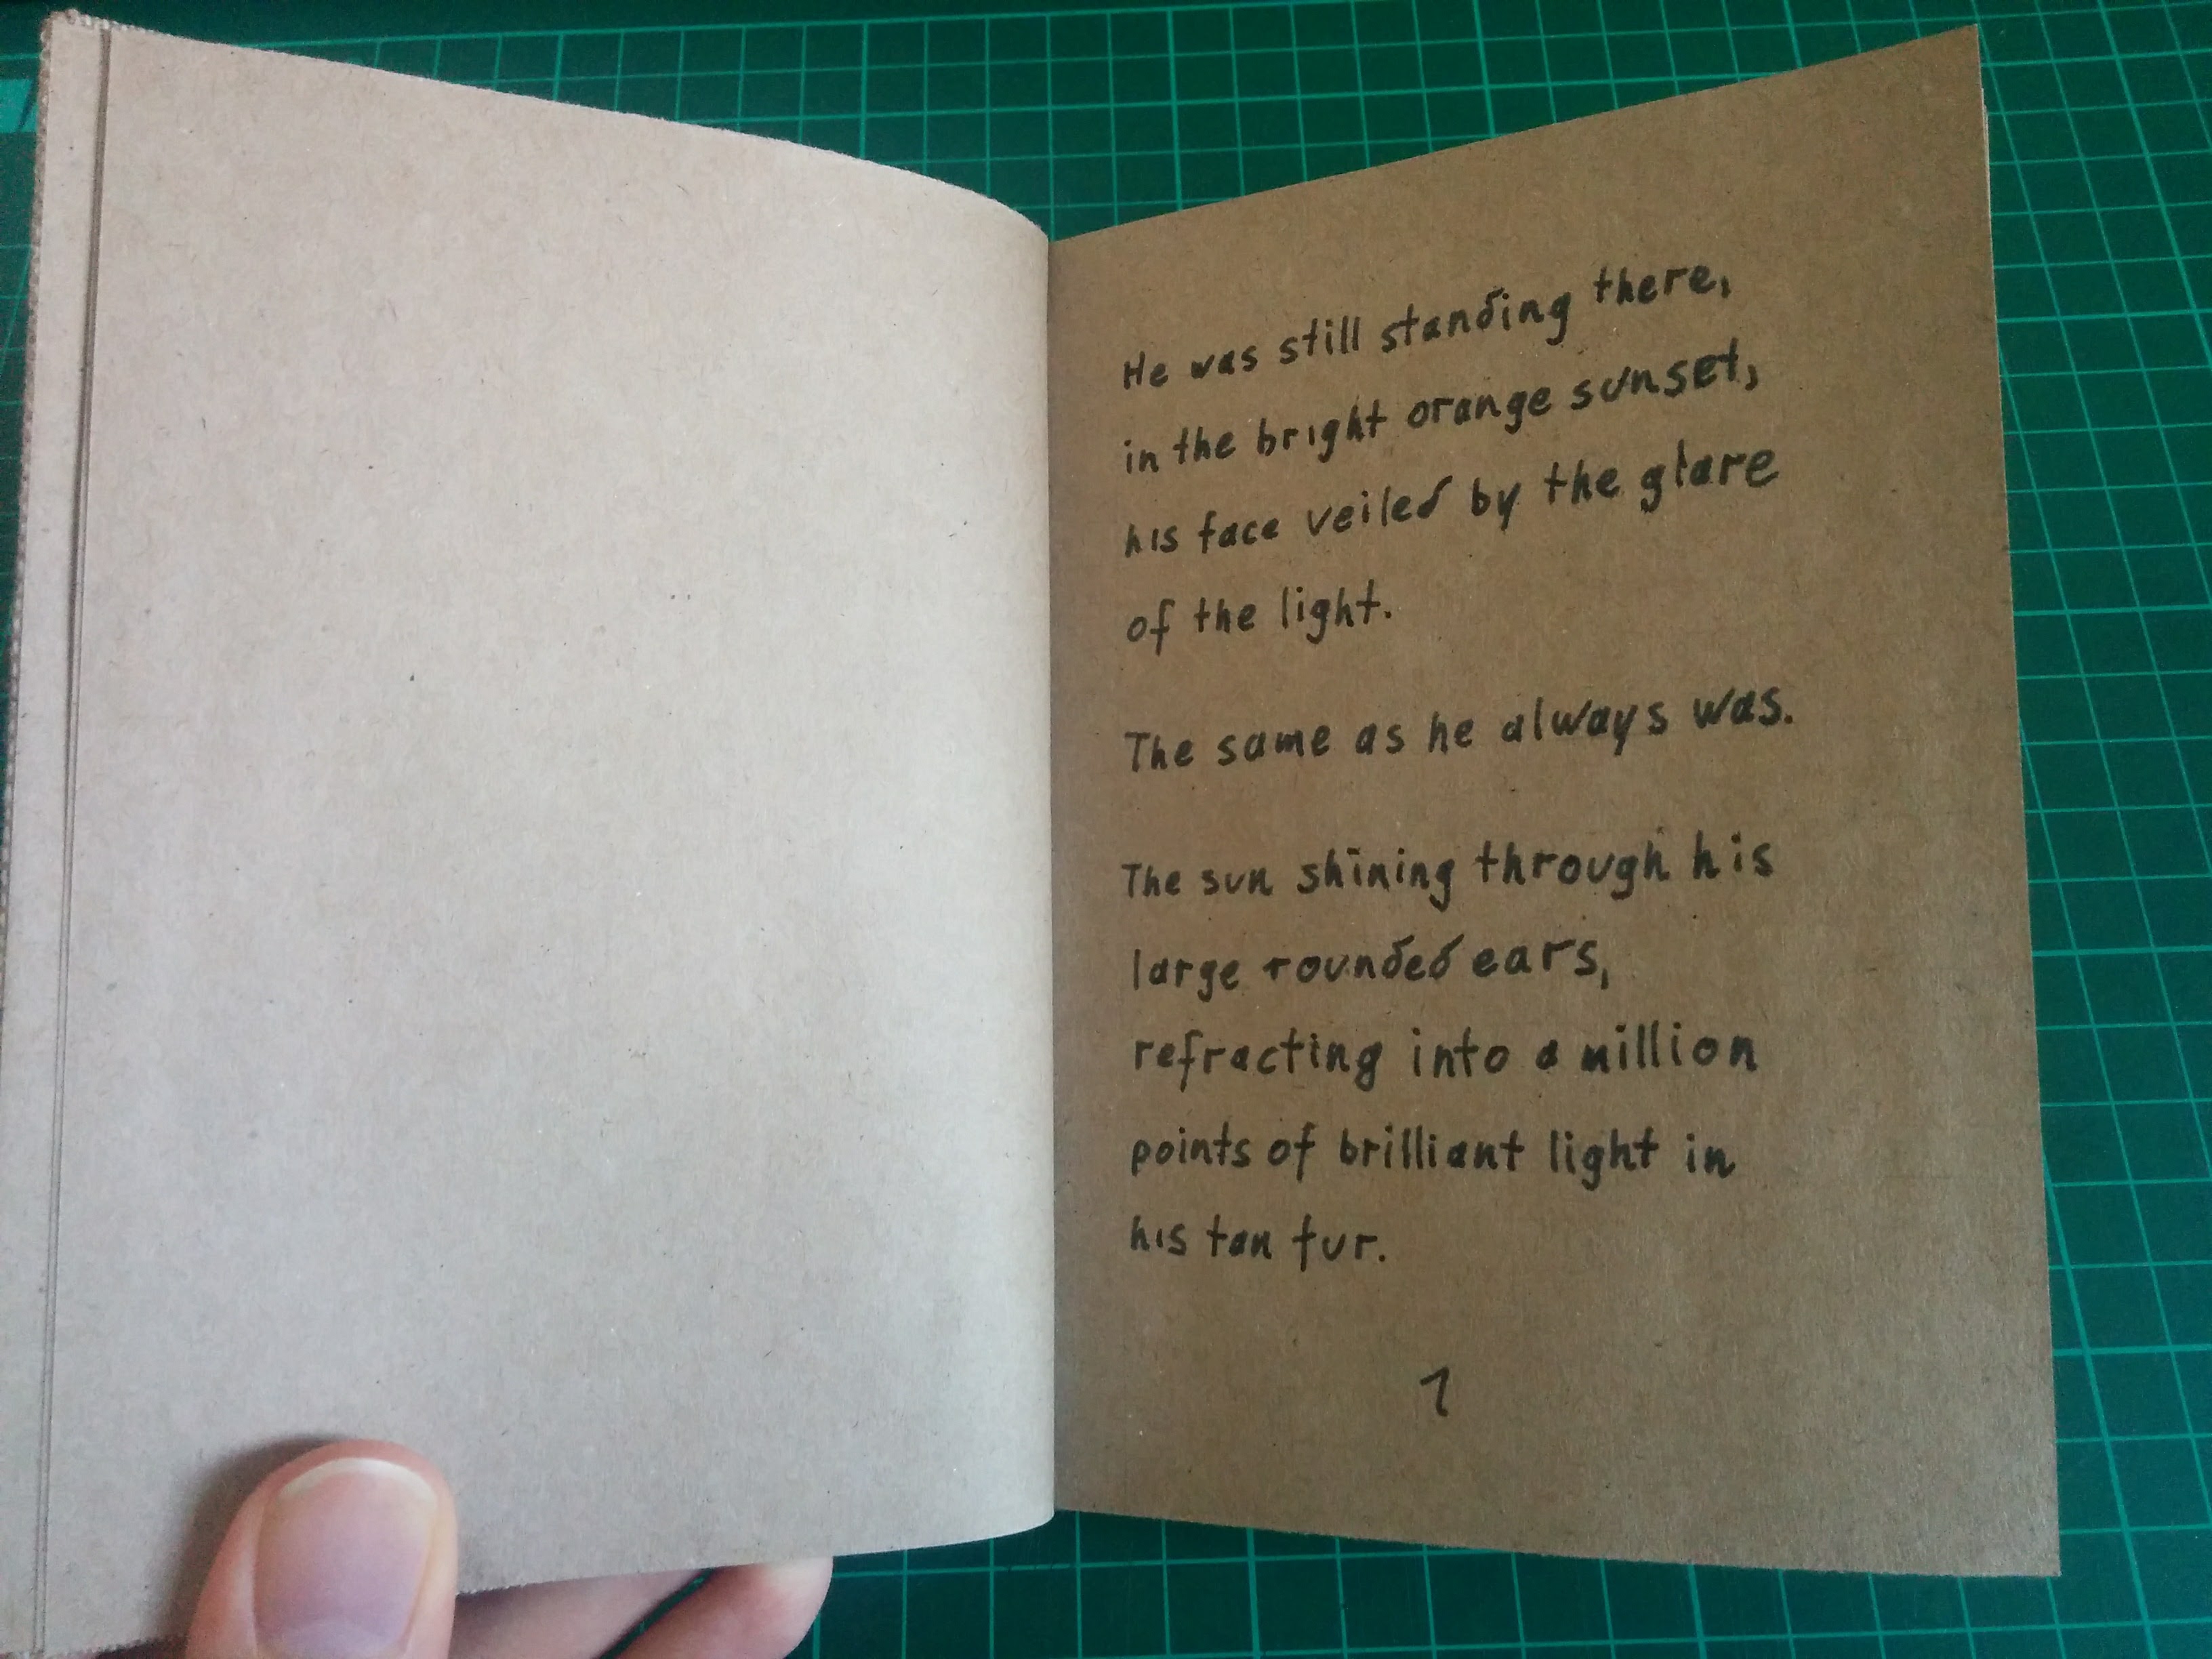 He was still standing there,
in the bright orange sunset,
his face veiled by the glare
of the light.
The same as he always was.
The sun shining through his
large rounded ears,
refracting into a million
points of brilliant light in
his tan fur.
1